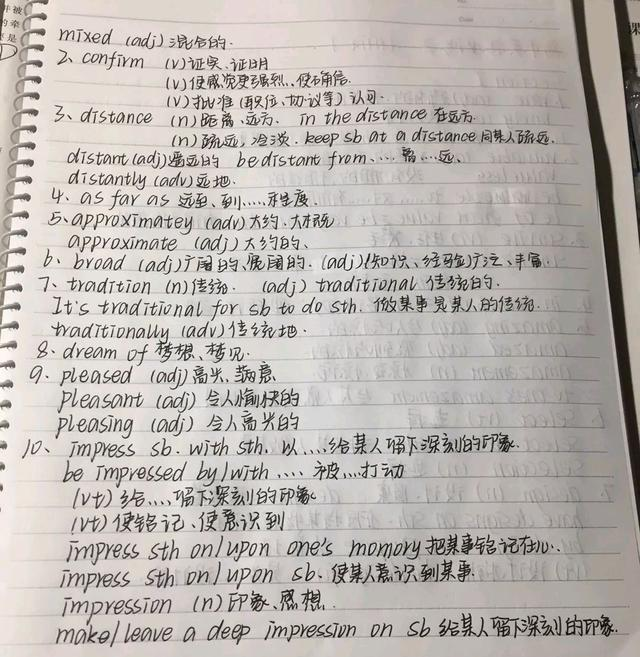 mixed (adj) 混合的.
2、confirm (v) 证实、证明
(v) 使感觉更强烈、使确信
(v) 批准 (职位、协议等) 认可.
3、distance (n) 距离、远方. in the distance 在远方.
(n) 疏远, 冷淡. keep sb at a distance 同某人疏远.
distant (adj) 遥远的 be distant from..... 离...远、
distantly (adv) 远地.
4、as far as 远至、到.....程度.
5、approximatey (adv) 大约、大概
approximate (adj) 大约的、
6、broad (adj) 广阔的、宽阔的、(adj)(知识、经验)广泛、丰富.
7、tradition (n) 传统. (adj) traditional 传统的.
It's traditional for sb to do sth. 做某事是某人的传统.
traditionally (adv) 传统地.
8、dream of 梦想、梦见.
9、pleased (adj) 高兴、满意
pleasant (adj) 令人愉快的
pleasing (adj) 令人高兴的
10、impress sb. with sth. 以....给某人留下深刻的印象.
be impressed by/with .... 被...打动
(vt) 给....留下深刻的印象
(vt) 使铭记、使意识到
impress sth on/upon one's momory 把某事铭记在心.
impress sth on/upon sb. 使某人意识到某事.
impression (n) 印象、感想.
make/leave a deep impression on sb 给某人留下深刻的印象.